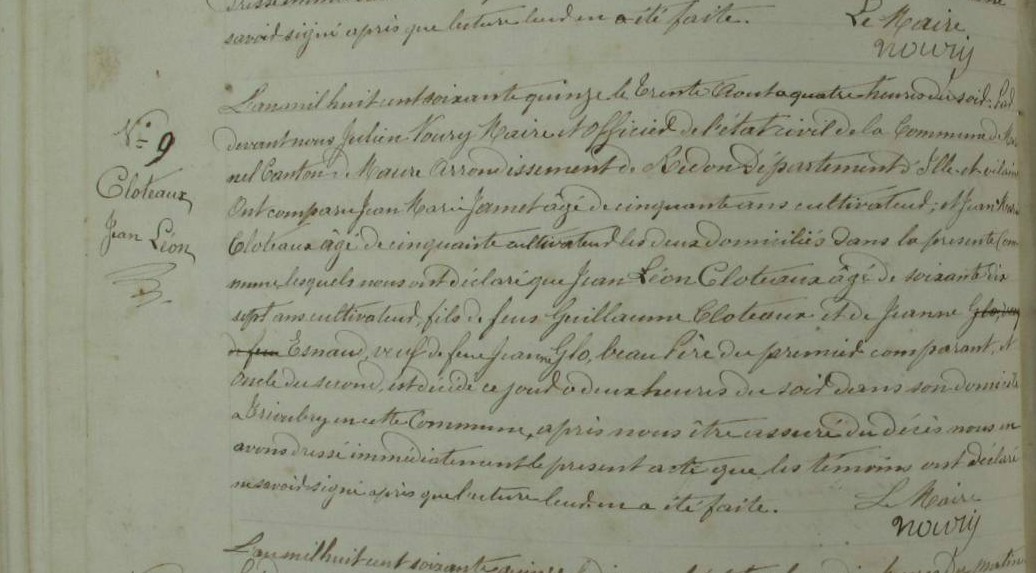 savoir signé après que lecture leur en a été faite.
Le Maire
Noury
N° 9
Cloteaux
Jean Léon
L'an mil huit cent soixante quinze le trente Août a quatre heures du soir. Par
devant nous Julien Noury Maire et Officier de l'état civil de la Commune de
nel Canton de Maure Arrondissement de Redon Département d'Ille et vilaine
Ont comparu Jean Marie Jamet âgé de cinquante ans cultivateur; et Jean Marie
Cloteaux âgé de cinquante cultivateur les deux domiciliés dans la présente Com
mune lesquels nous ont déclaré que Jean Léon Cloteaux âgé de soixante dix
sept ans cultivateur, fils de feus Guillaume Cloteaux et de Jeanne Glo, veuf
de feue Esnaud, veuf de feue Jeanne Glo, beau Père du premier comparant, et
Oncle du second, est décédé ce jour a deux heures du soir dans son domicile
a en cette Commune, après nous être assuré du décès nous en
avons dressé immédiatement le present acte que les témoins ont déclaré
ne savoir signé après que lecture leur en a été faite.
Le Maire
Noury
L'an mil huit cent soixante quinze